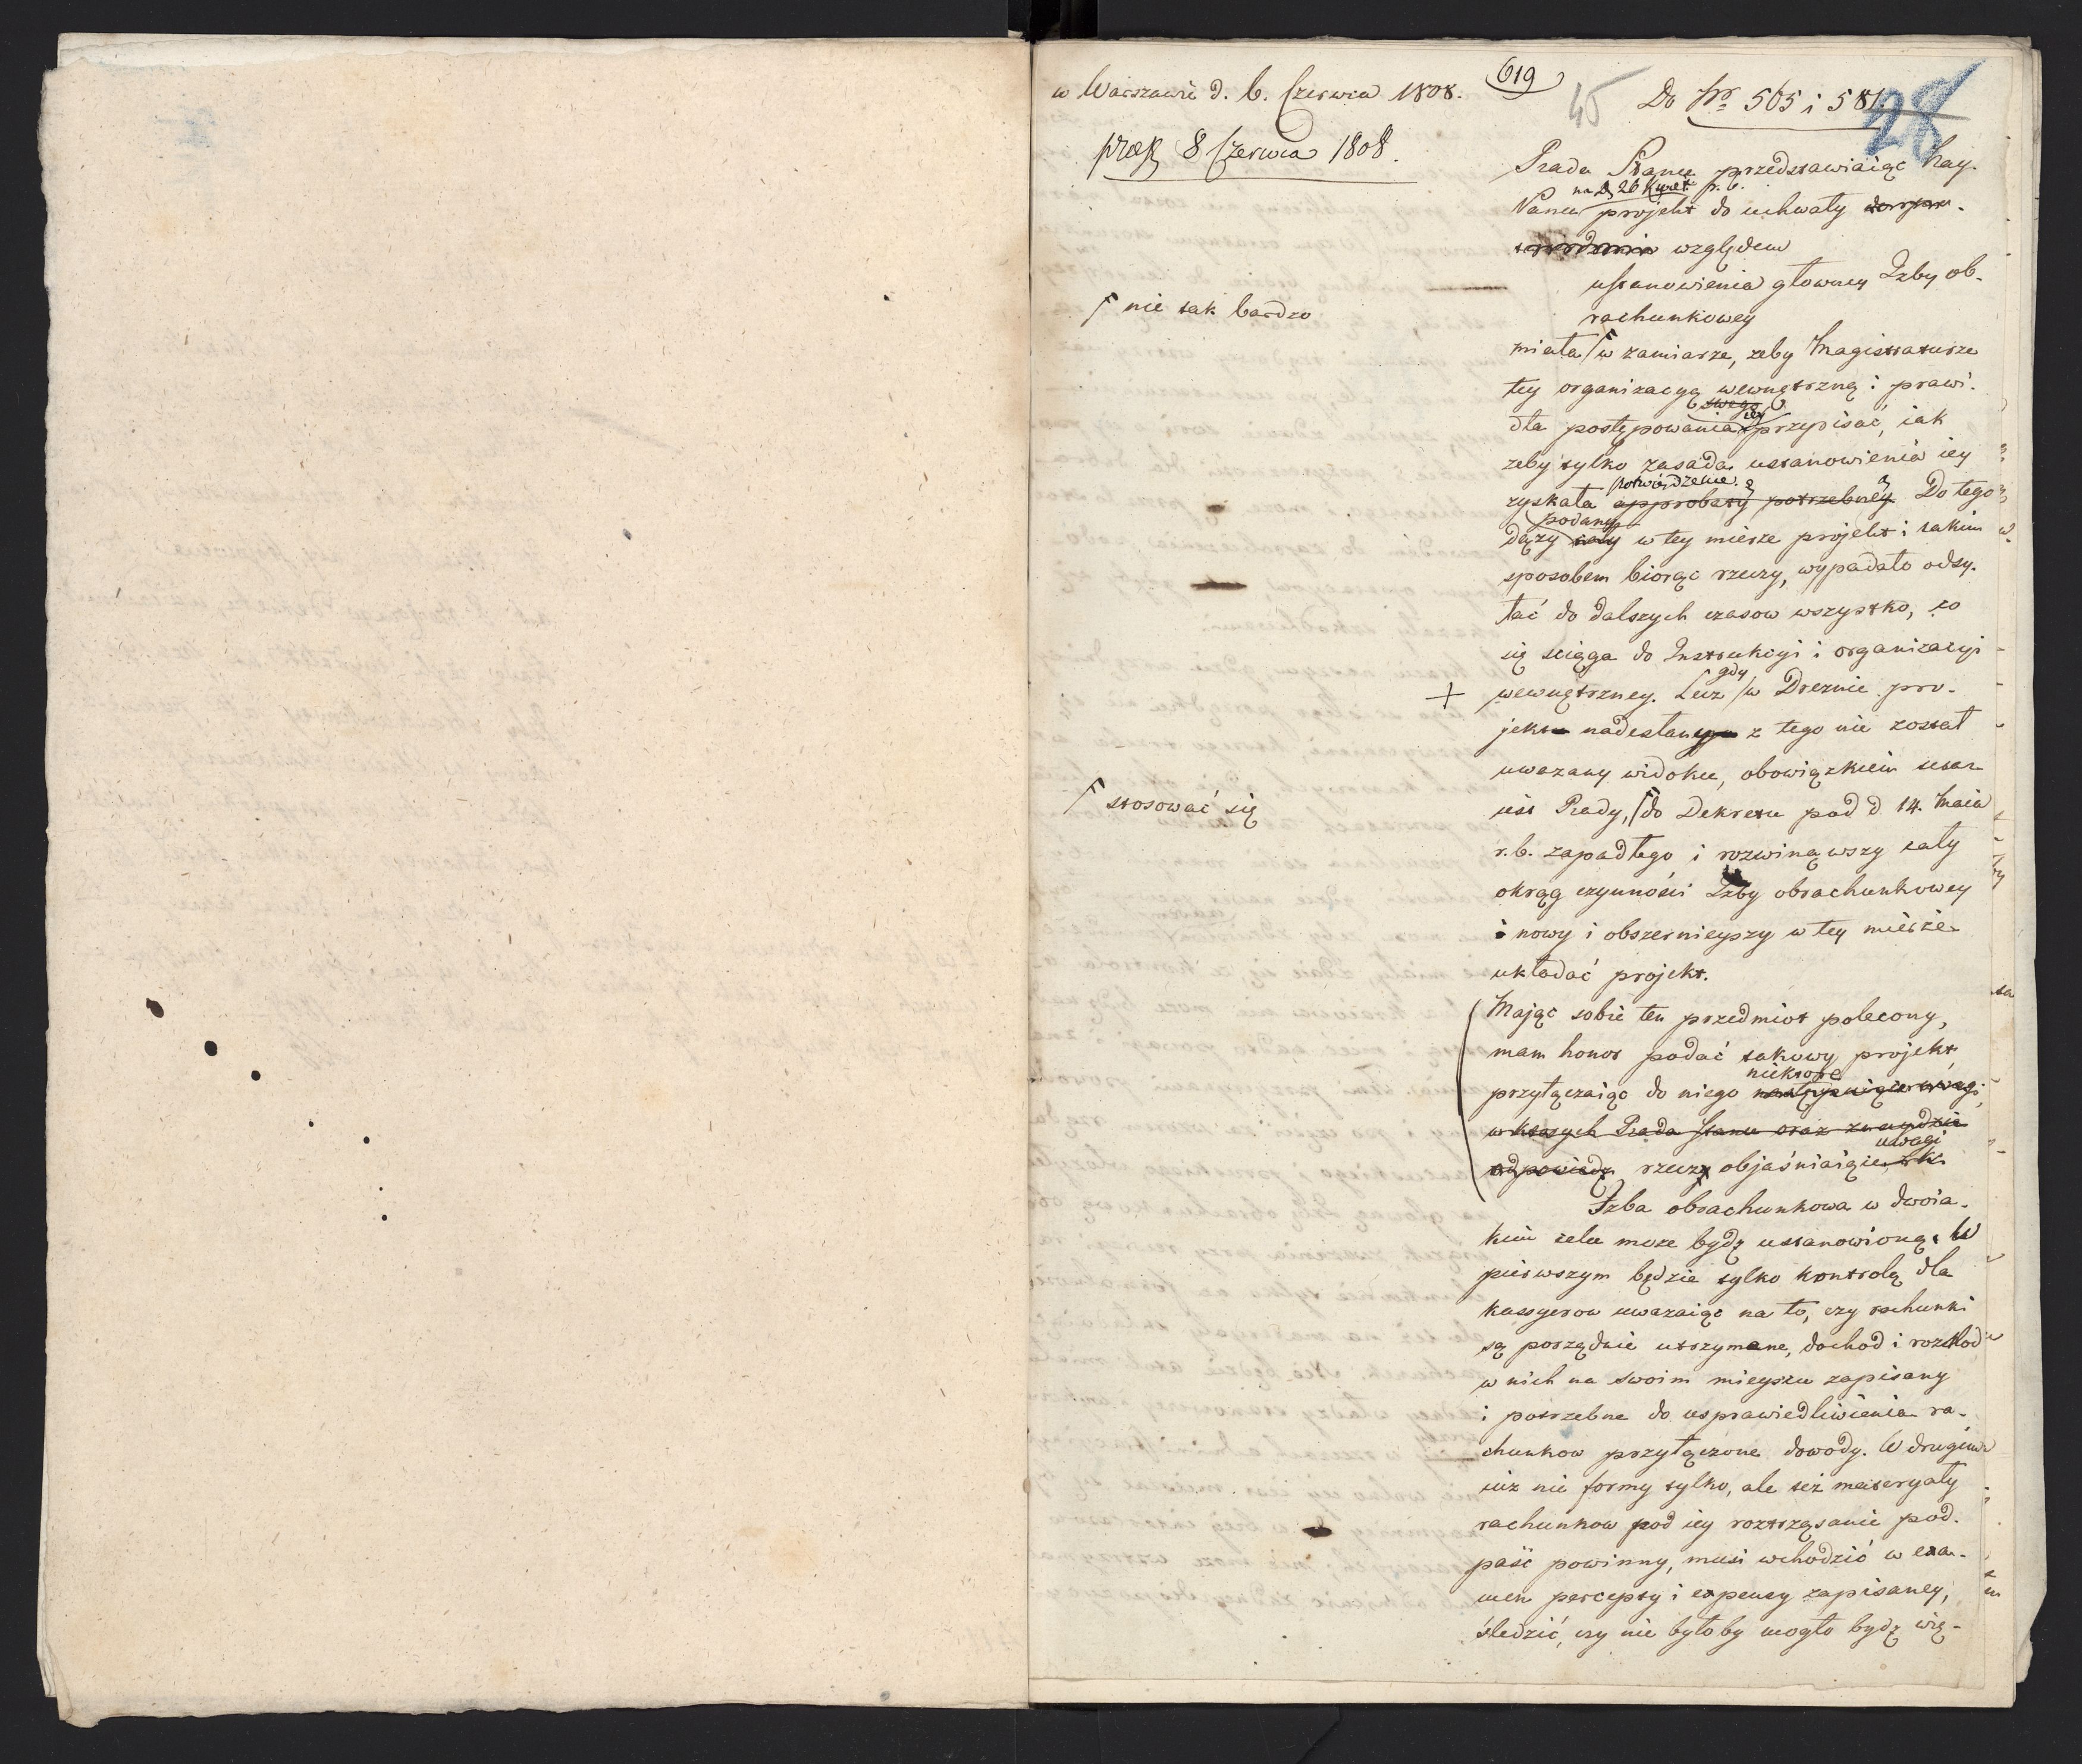 w Warszawie d. 6. Czerwca 1808.
619
45
Do Nro 565 i 581.
28
8 Czerwca 1808.
Rada Stanu przedstawiaiąc Nay.
na d. 26 Kwiet. r. b.
Panu projekt do uchwały
względem
ustanowienia głowney Izby ob-
rachunkowey
⌈ nie tak bardzo
miała ⌈ w zamiarze, zeby Magistraturze
tey organizacyą wewnętrzną i prawi-
swego iey
dła postępowania przypisać, iak
zeby tylko zasada ustanowienia iey
potwierdzenie.
zyskała approbatę potrzebney. Do tego
podany
dąży cały w tey mierze projekt i takim
sposobem biorąc rzeczy, wypadało odsy-
łać do dalszych czasow wszystko, co
się sciąga do Instrukcyi i organizacyi
gdy
+ wewnętrzney. Lecz w Dreznie pro-
jekt nadesłany z tego nie został
uwazany widoku, obowiązkiem
iest Rady, ⌈ do Dekretu pod d. 14. Maia
⌈ stosować się
r. b. zapadłego i rozwinąwszy cały
okrąg czynności Izby obrachunkowey
i nowy i obszernieyszy w tey mierze
układać projekt.
Mając sobie ten przedmiot polecony,
mam honor podać takowy projekt,
niektore
przyłączaiąc do niego następuiące uwagi,
w ktorych Rada Stanu oraz znaydzie
uwagi
odpowiedz rzecz objaśniaiące
Izba obrachunkowa w dwoia-
kim celu moze bydz ustanowioną. W
pierwszym będzie tylko kontrolą dla
kassyerow uwazaiąc na to, czy rachunki
są porządnie utrzymane, dochod i rozchod
w nich na swoim mieyscu zapisany
i potrzebne do usprawiedliwienia ra-
chunkow przyłączone dowody. W drugim
iuż nie formy tylko, ale też materyały
rachunkow pod iey roztrząsanie pod-
paść powinny, musi wchodzić w exa-
men percepty i expensy zapisaney,
śledzić, czy nie byłoby mogło bydz wię-